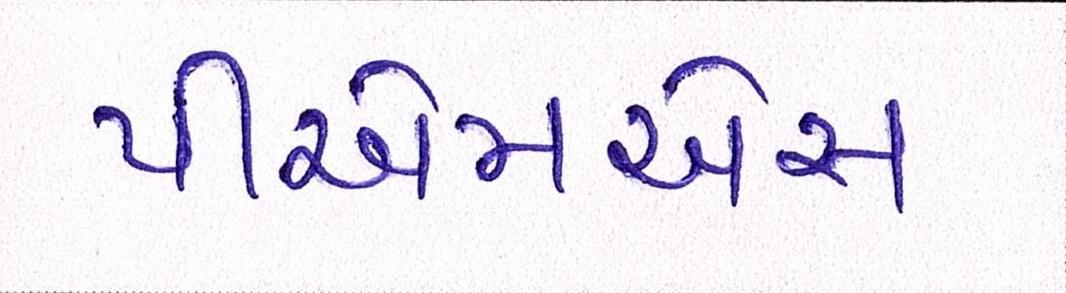 પીએમએસ